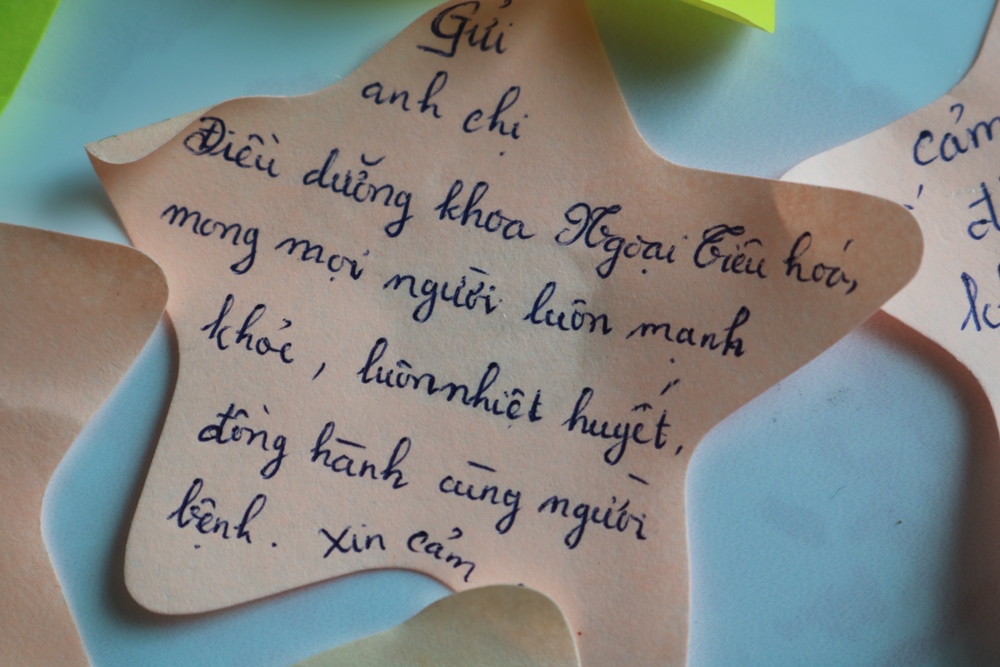 Gửi
anh chị
Điều dưỡng khoa Ngoại Tiêu hoá,
mong mọi người luôn mạnh
khỏe, luôn nhiệt huyết,
đồng hành cùng người
bệnh. Xin cảm
cảm